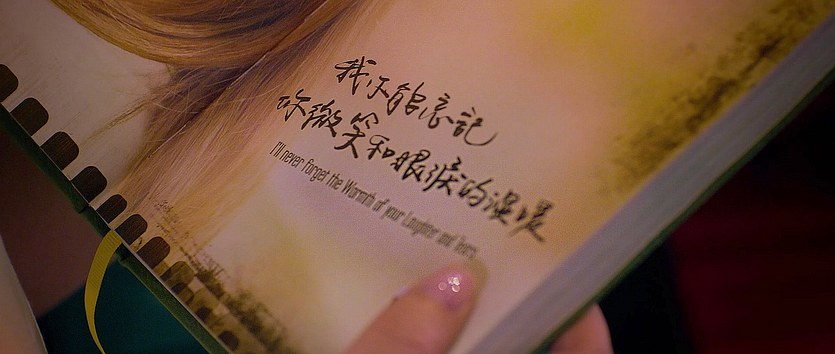 我不能忘記
你微笑和眼淚的溫暖
I'll never forget the Warmth of your Laughter and Tears